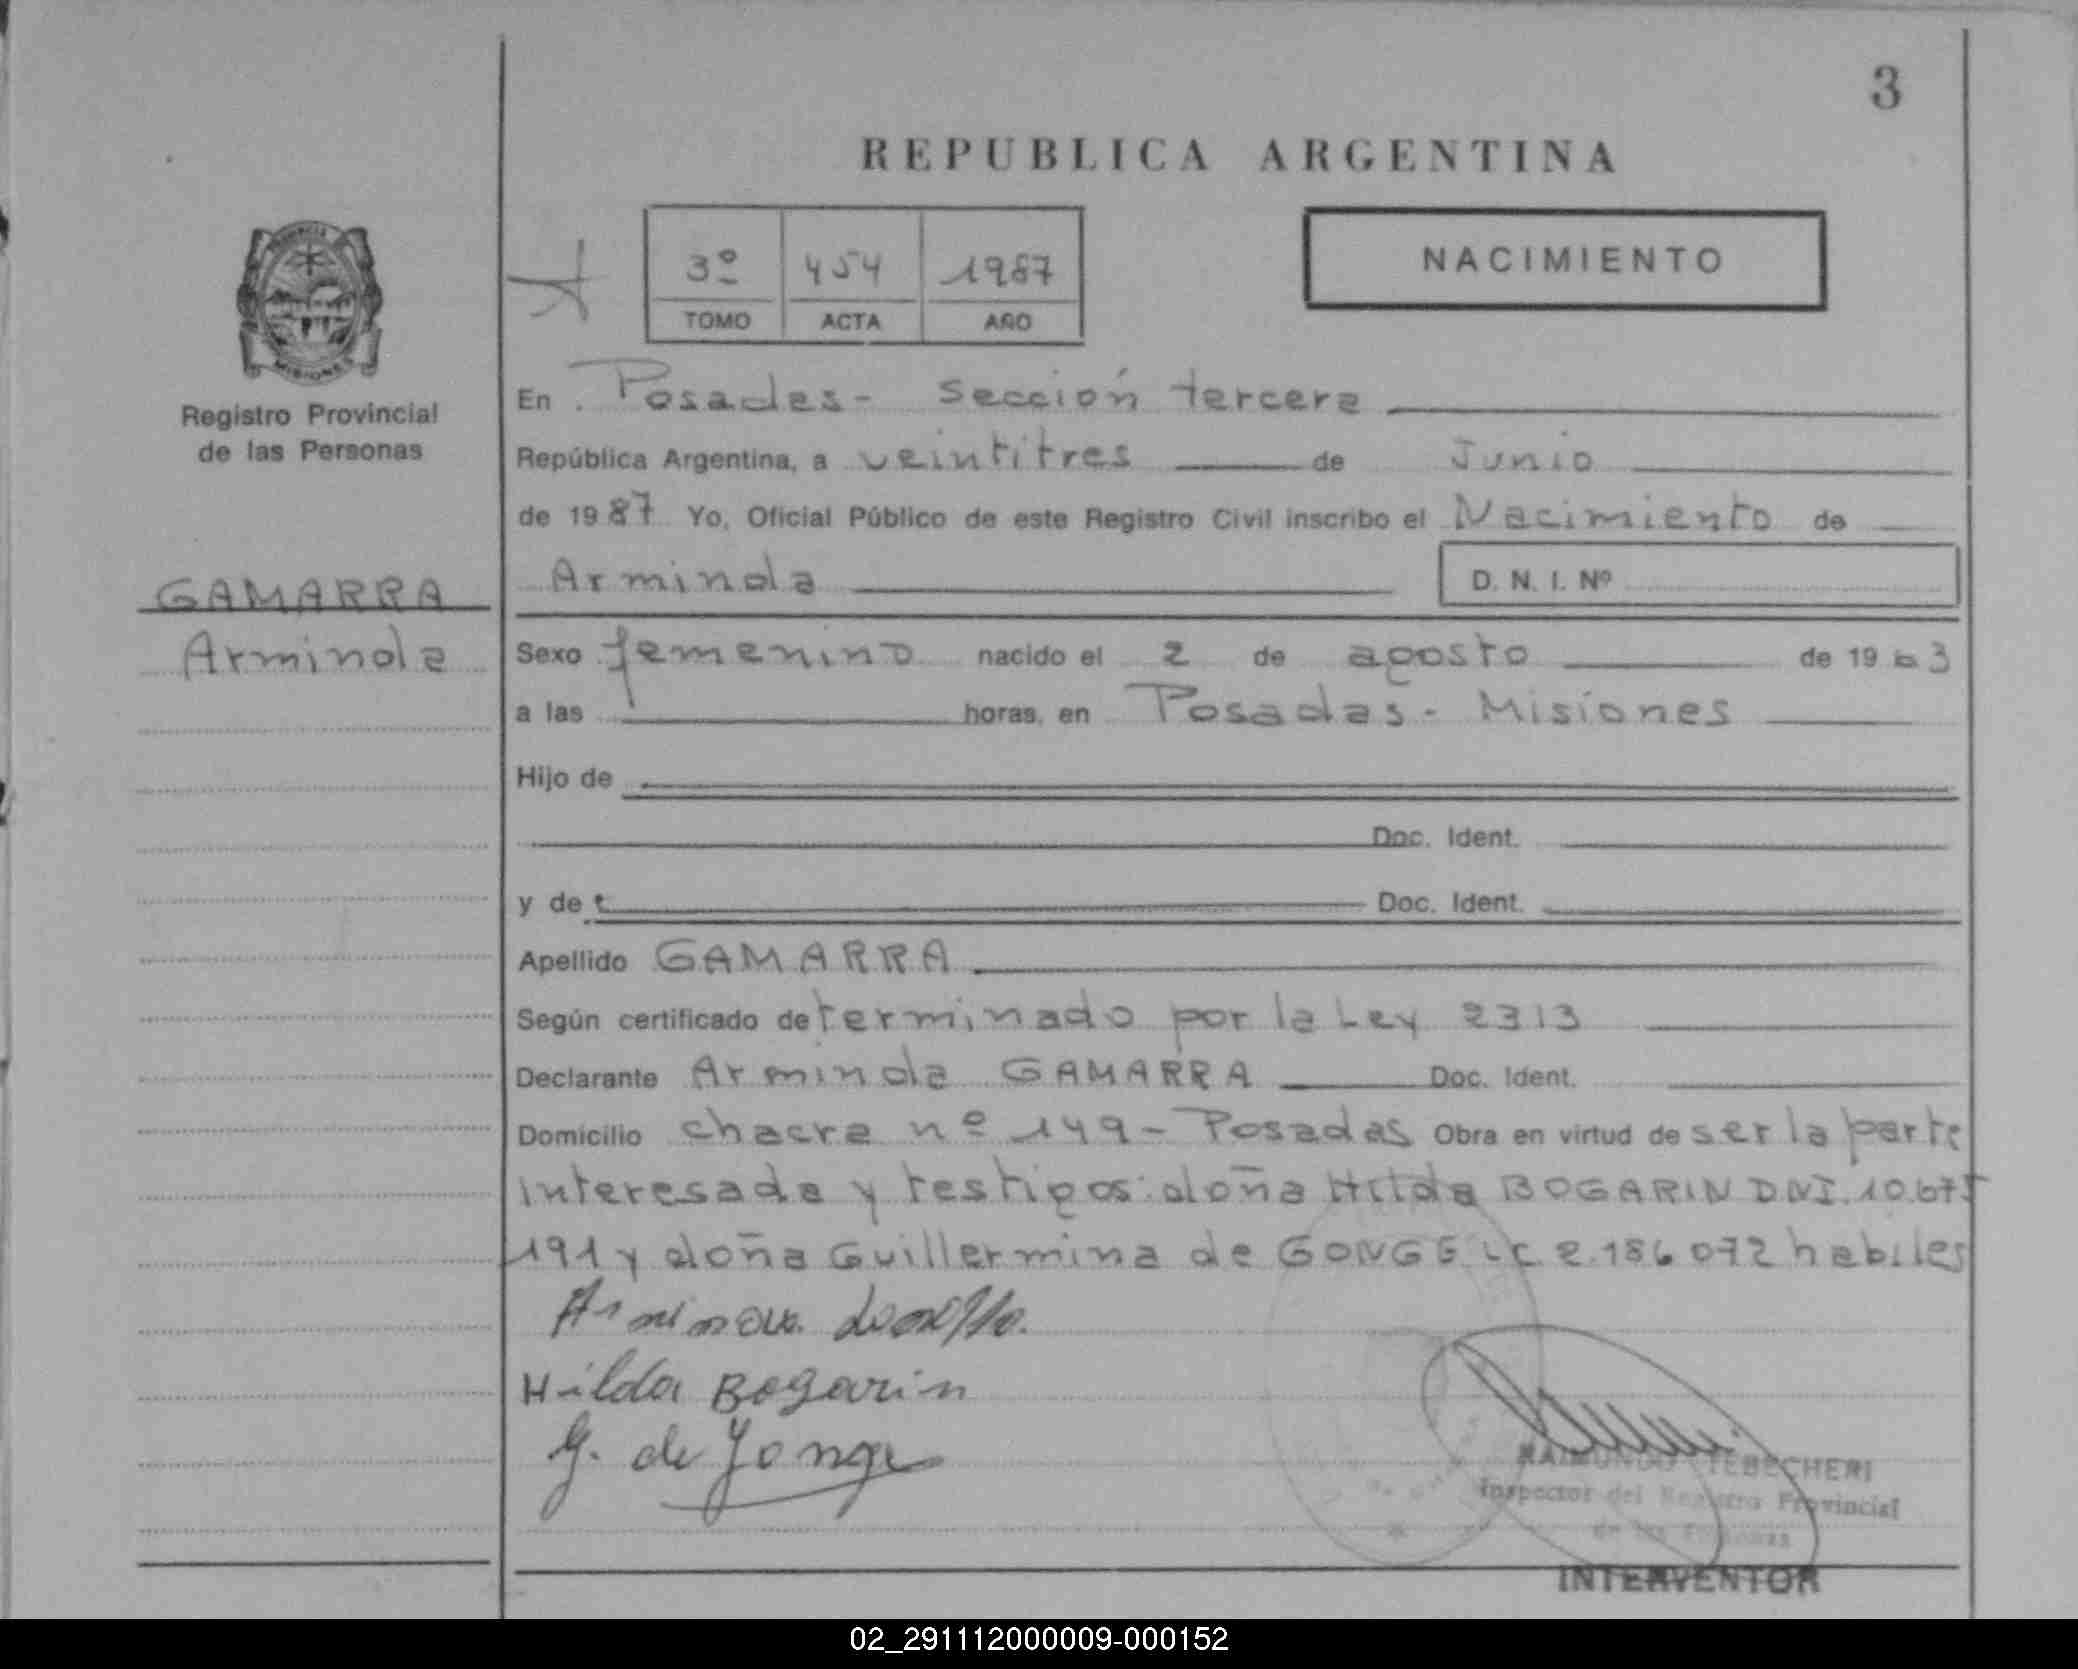 3
REPUBLICA ARGENTINA
3º 454 1987
TOMO ACTA AÑO
NACIMIENTO
PROVINCIA
MISIONES
Registro Provincial
de las Personas
GAMARRA
Arminda
En Posadas - Sección tercera
República Argentina, a veintitres de Junio
de 1987 Yo, Oficial Público de este Registro Civil inscribo el Nacimiento de
Arminda D. N. I. Nº
Sexo femenino nacido el 2 de agosto de 1963
a las horas, en Posadas - Misiones
Hijo de
Doc. Ident.
y de Doc. Ident.
Apellido GAMARRA
Según certificado determinado por la Ley 2313
Declarante Arminda GAMARRA Doc. Ident.
Domicilio chacra nº 149 - Posadas Obra en virtud de ser la parte
interesada y testigos: doña Hilda BOGARIN DNI. 10.675
191 y doña Guillermina de GONGE LC 2.186 072 habiles
Hilda Bogarin
G. de Jonge
RAIMUNDO TEBECHERI
Inspector del Registro Provincial
de las Personas
INTERVENTOR
02_291112000009-000152